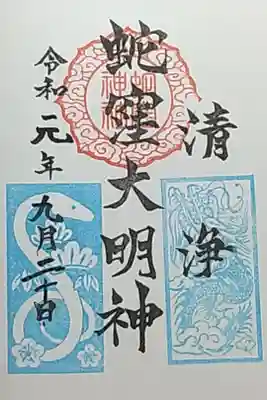 清浄
蛇窪大明神
令和元年
九月二十日